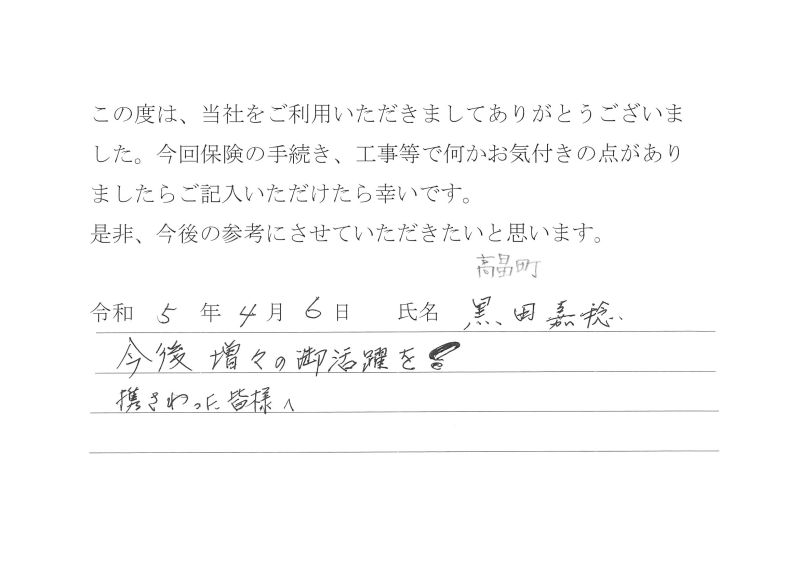 この度は、当社をご利用いただきましてありがとうございま
した。今回保険の手続き、工事等で何かお気付きの点があり
ましたらご記入いただけたら幸いです。
是非、今後の参考にさせていただきたいと思います。
高畠町
令和 5 年 4 月 6 日 氏名 黒田嘉稔
今後 増々の御活躍を!
携さわった皆様へ